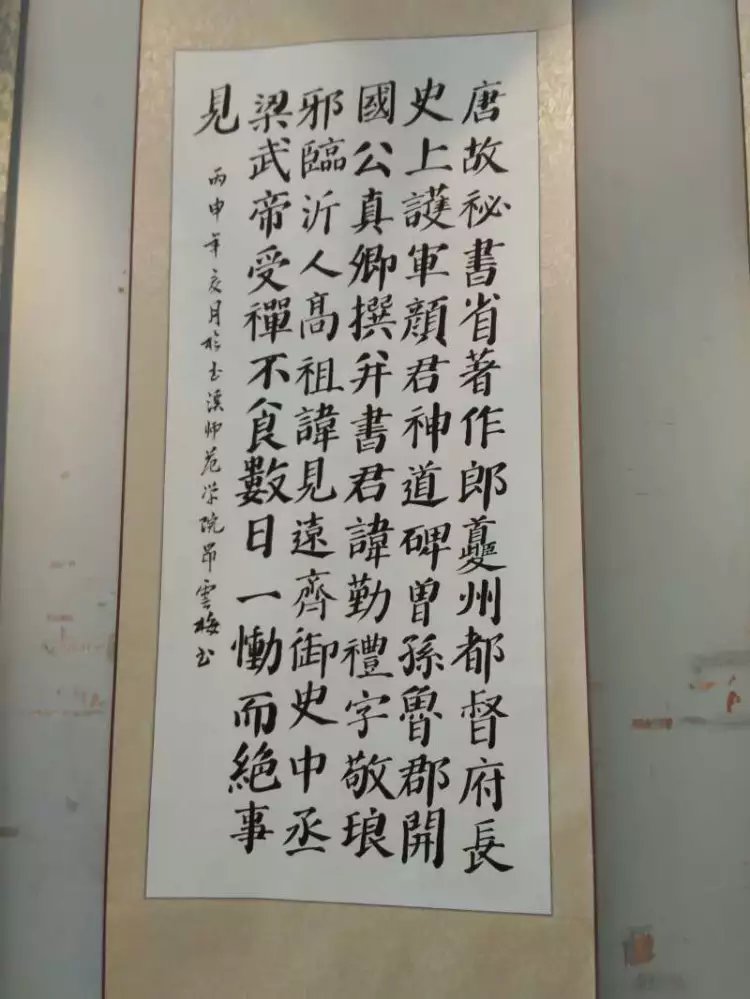 唐故祕書省著作郎夔州都督府長
史上護軍顏君神道碑曾孫魯郡開
國公真卿撰并書君諱勤禮字敬琅
邪臨沂人高祖諱見遠齊御史中丞
梁武帝受禪不食數日一慟而絕事
見
丙申年亥月於玉溪师范学院昂雲梅书